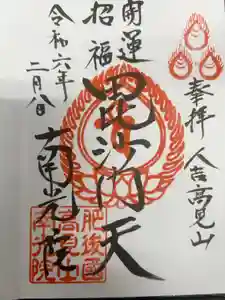 奉拝 人吉高見山
開運
招福
毘沙門天
令和六年
二月八日
肥後國
高見山